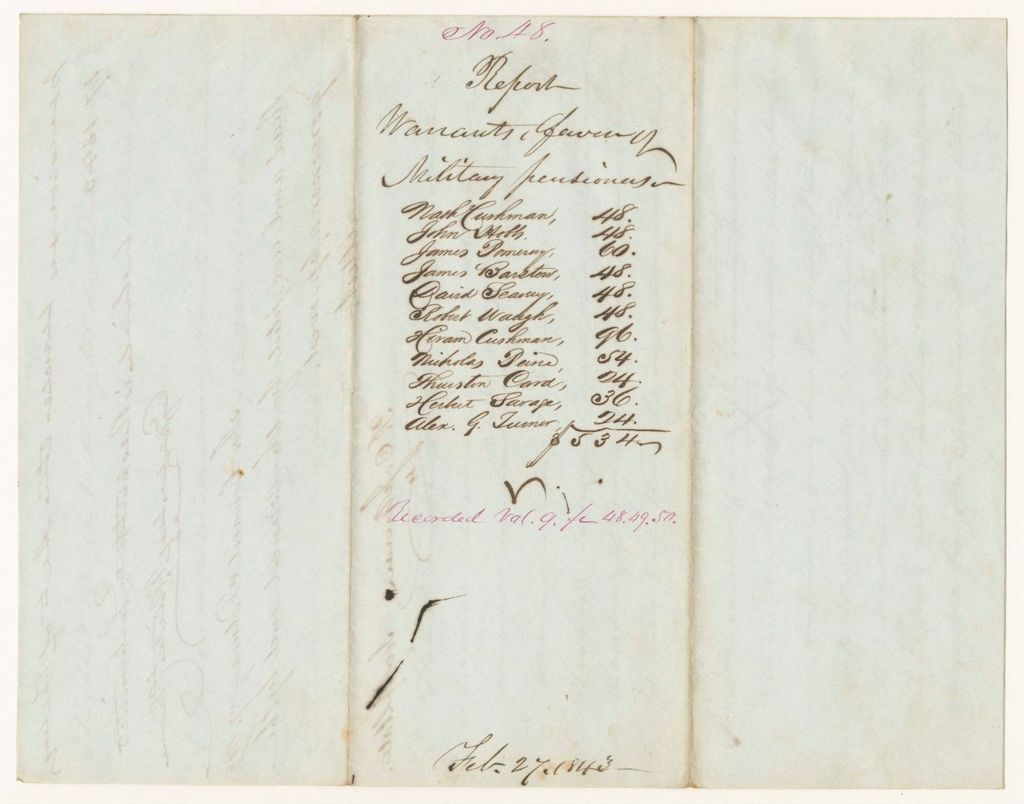 No. 48.
Report
Warrants, favor of
Military pensioners
Nash Cushman, 48.
John Holt, 48.
James Pomeroy, 60.
James Barstow, 48.
David Seavey, 48.
Robert Waugh, 48.
Hiram Cushman, 96.
Nicholas 54.
Thurston Card, 24.
Herbert Savage, 36.
Alex. G. Turner, 24.
$534
Recorded Vol. 9. p 48.49.50.
Feb. 27. 1843